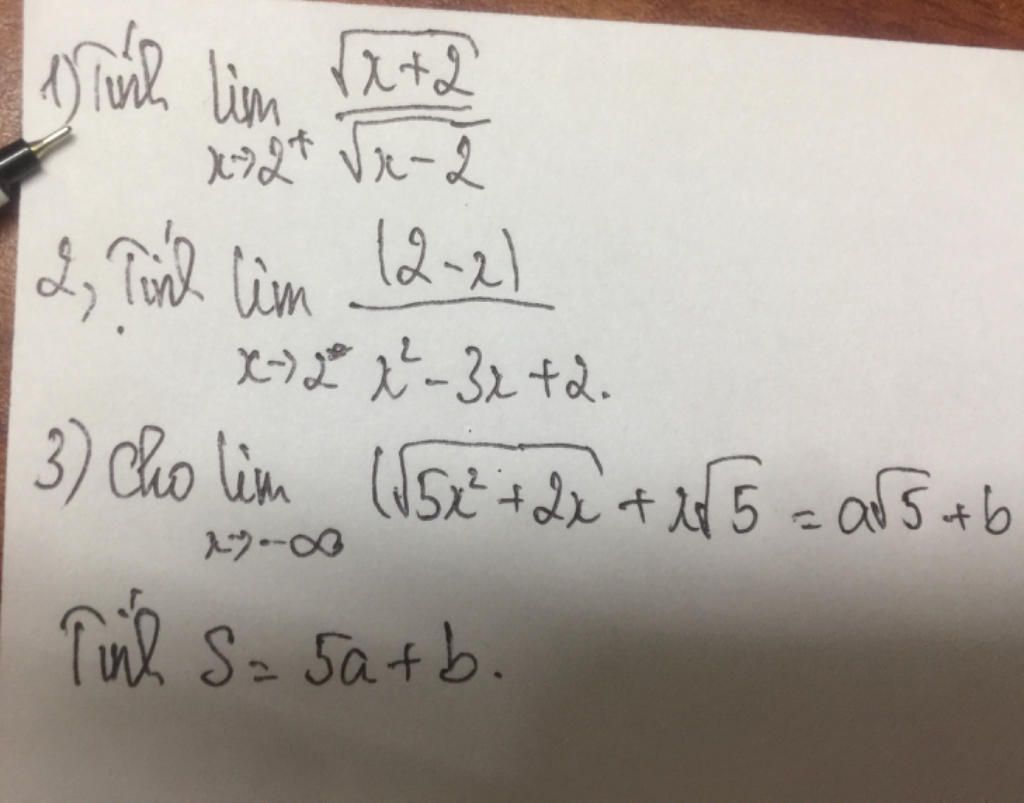 1) Tính lim x→2⁺ √(x+2) / √(x-2)
2, Tính lim x→2 (2-x) / x² - 3x + 2.
3) Cho lim x→-∞ (√(5x² + 2x) + x√5 = a√5 + b
Tính S = 5a + b.